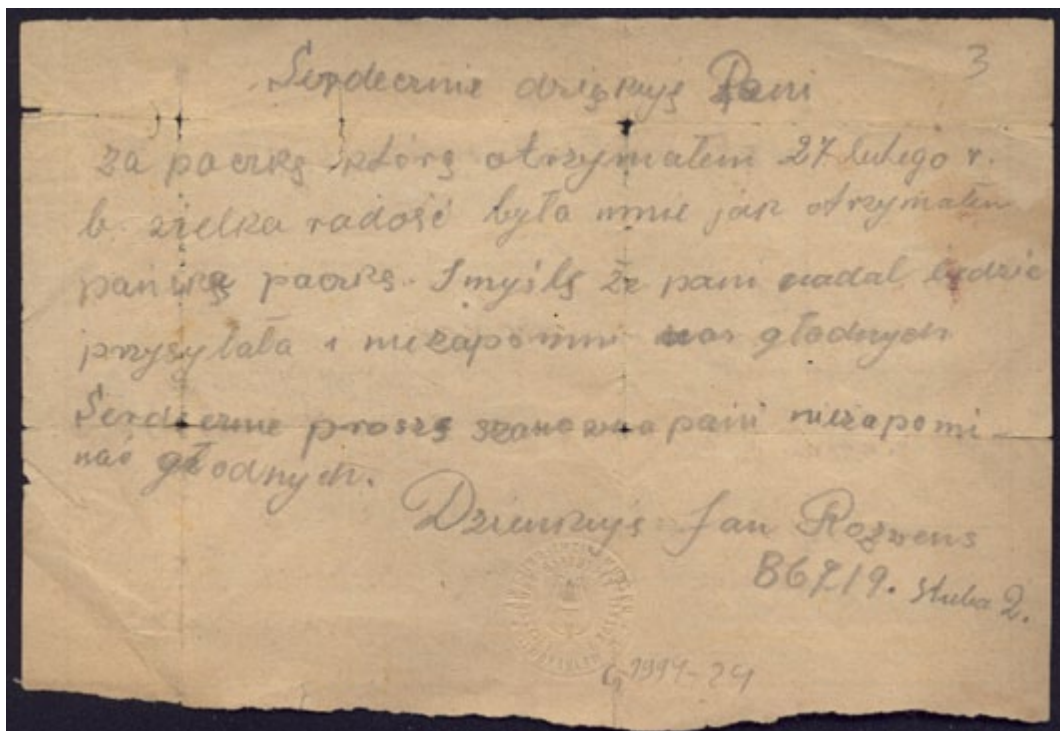 3
Serdecznie dziękuję Pani
za paczkę którą otrzymałem 27 lutego r.
b. wielka radość była mnie jak otrzymałem
pańską paczkę. I myślę że pani nadal będzie
przysyłała i niezapomni nas głodnych
Serdecznie proszę szanowna pani niezapomi-
nać głodnych.
Dziękuję Jan
B6719. Stuba 2.
1994-24